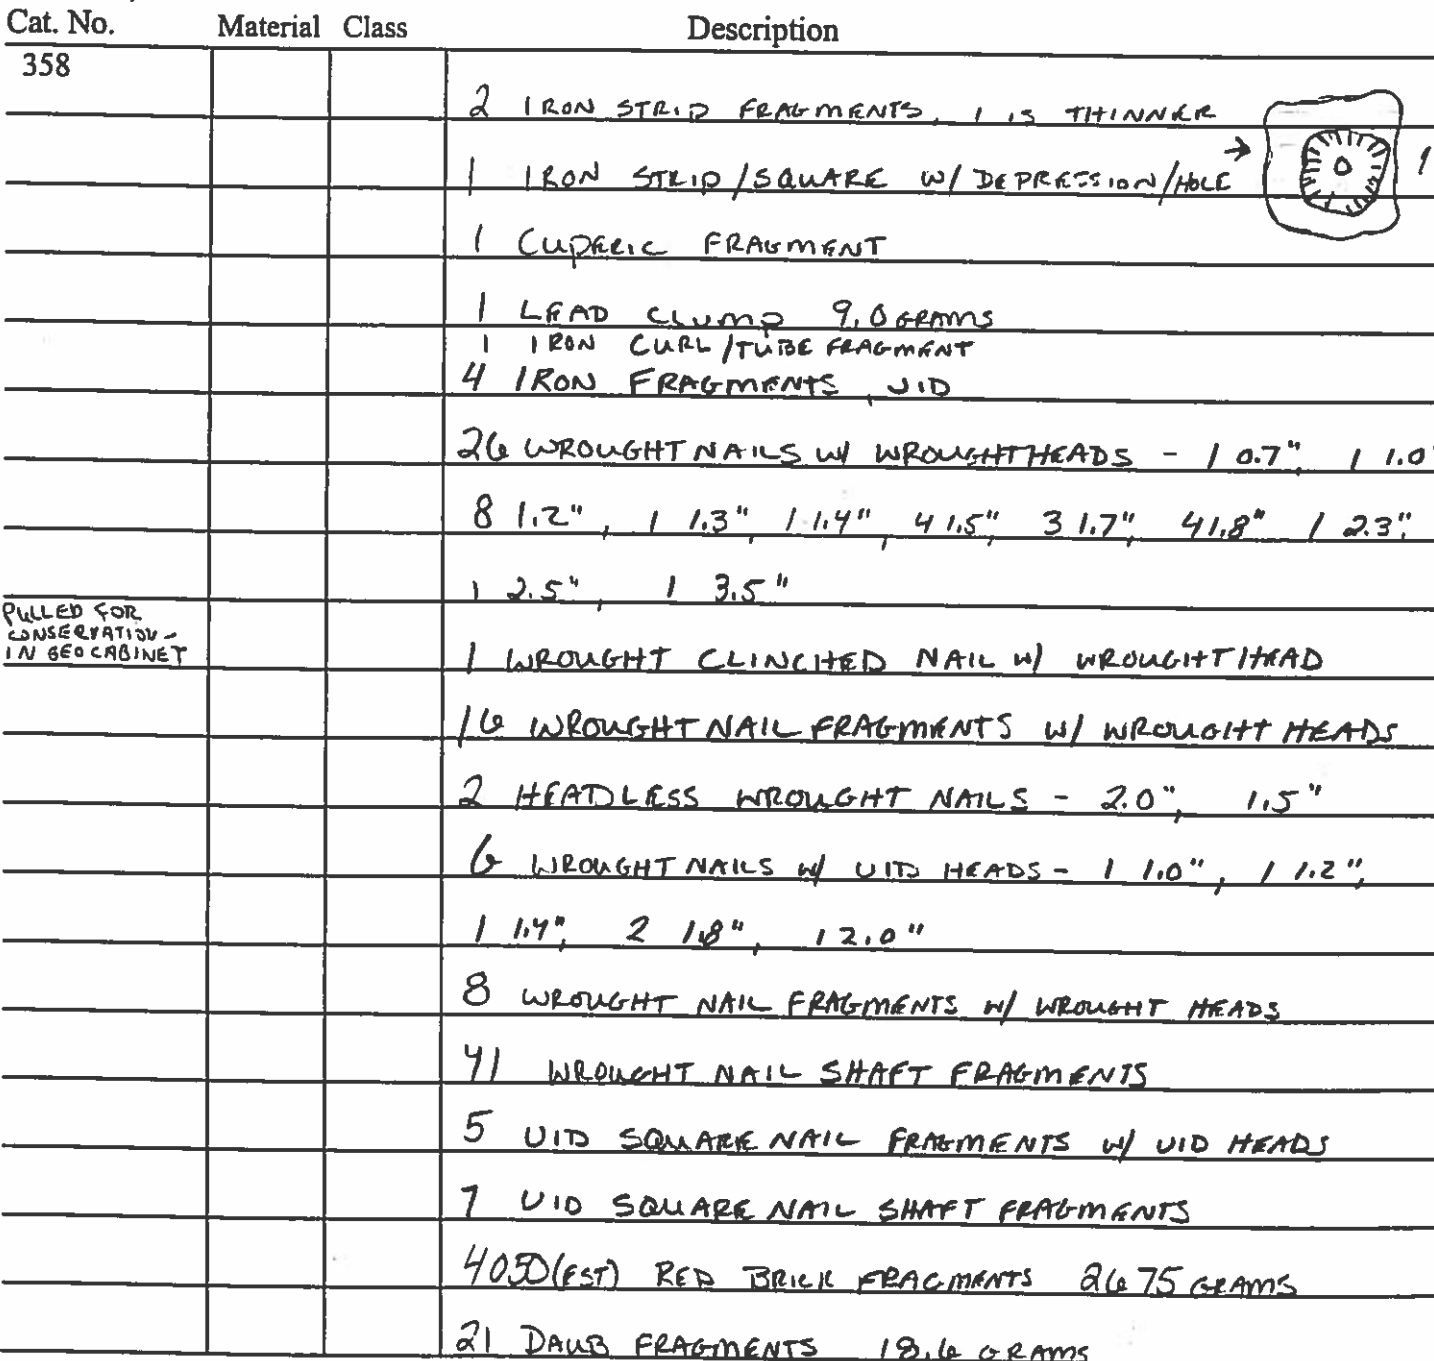 Cat. No. Material Class Description
358
2 IRON STRIP FRAGMENTS, 1 IS THINNER
1 IRON STRIP/SQUARE W/ DEPRESSION/HOLE → 1
1 CUPERIC FRAGMENT
1 LEAD CLUMP 9.0 GRAMS
1 IRON CURL/TUBE FRAGMENT
4 IRON FRAGMENTS, UID
26 WROUGHT NAILS W/ WROUGHT HEADS - 1 0.7", 1 1.0"
8 1.2", 1 1.3", 1 1.4", 4 1.5", 3 1.7", 4 1.8" 1 2.3",
1 2.5", 1 3.5"
PULLED FOR
CONSERVATION -
IN GEO CABINET
1 WROUGHT CLINCHED NAIL W/ WROUGHT HEAD
16 WROUGHT NAIL FRAGMENTS W/ WROUGHT HEADS
2 HEADLESS WROUGHT NAILS - 2.0", 1.5"
6 WROUGHT NAILS W/ UID HEADS - 1 1.0", 1 1.2",
1 1.4", 2 1.8", 1 2.0"
8 WROUGHT NAIL FRAGMENTS W/ WROUGHT HEADS
41 WROUGHT NAIL SHAFT FRAGMENTS
5 UID SQUARE NAIL FRAGMENTS W/ UID HEADS
7 UID SQUARE NAIL SHAFT FRAGMENTS
4050(EST) RED BRICK FRAGMENTS 2675 GRAMS
21 DAUB FRAGMENTS 18.6 GRAMS